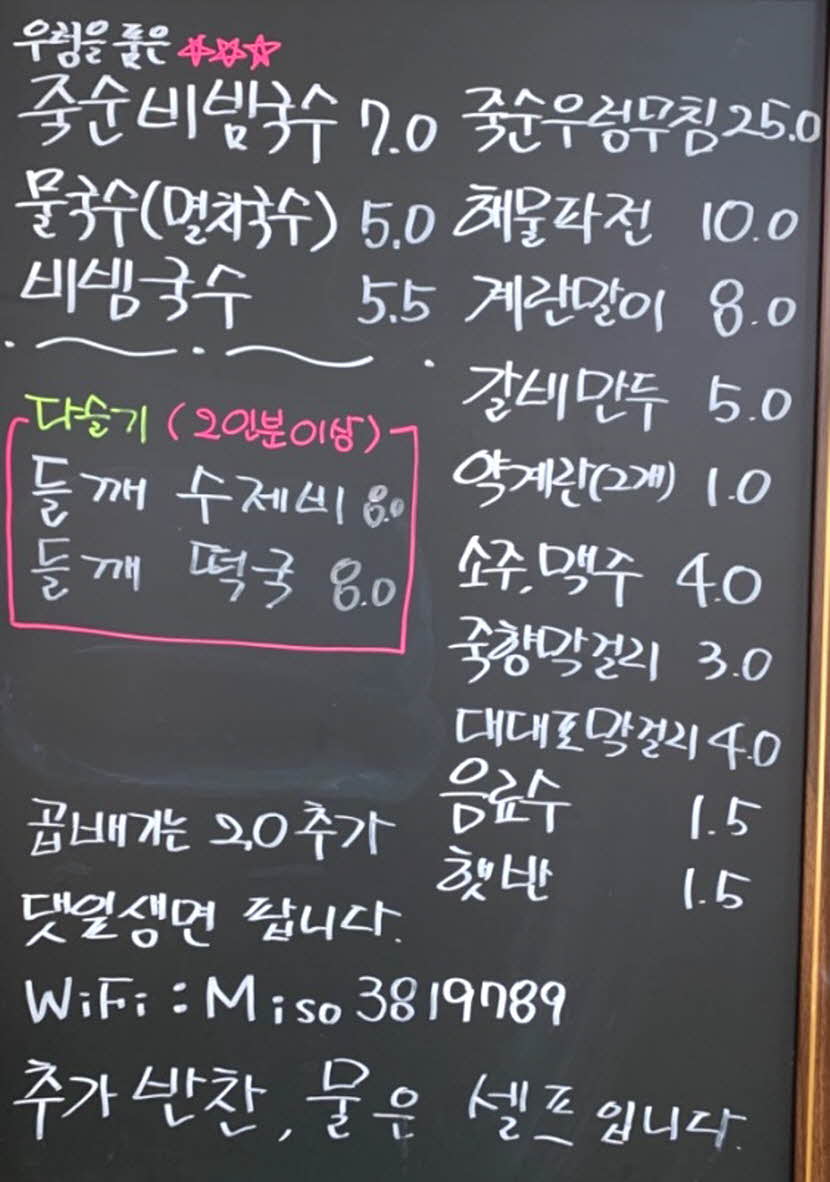 우렁을 품은 ☆☆☆
죽순비빔국수 7.0
물국수(멸치국수) 5.0
비빔국수 5.5
다슬기 (2인분이상)
들깨 수제비 8.0
들깨 떡국 8.0
곱배기는 2.0 추가
댓잎생면 팝니다.
WiFi : Miso 3819789
추가 반찬, 물은 셀프입니다.
죽순우렁무침 25.0
해물파전 10.0
계란말이 8.0
갈비만두 5.0
약계란(2개) 1.0
소주, 맥주 4.0
죽향막걸리 3.0
대대포막걸리 4.0
음료수 1.5
햇반 1.5